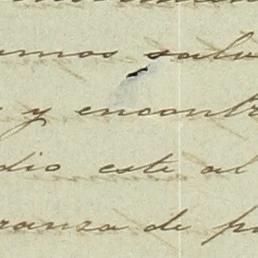 amos salv
y encontr
dio este al
ranza de p